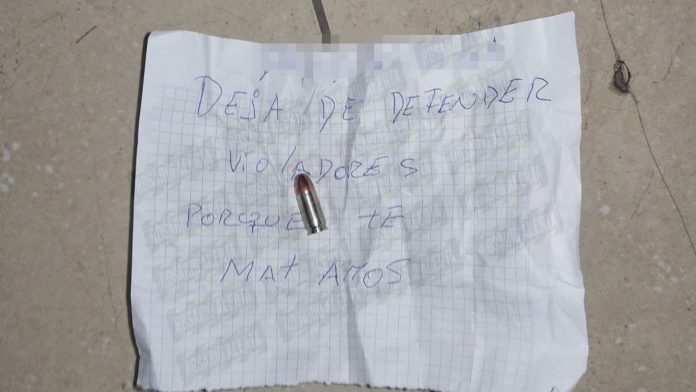 DEjA DE DEFENDER
ViOlADORES
PORQUE TE
MATAMOS